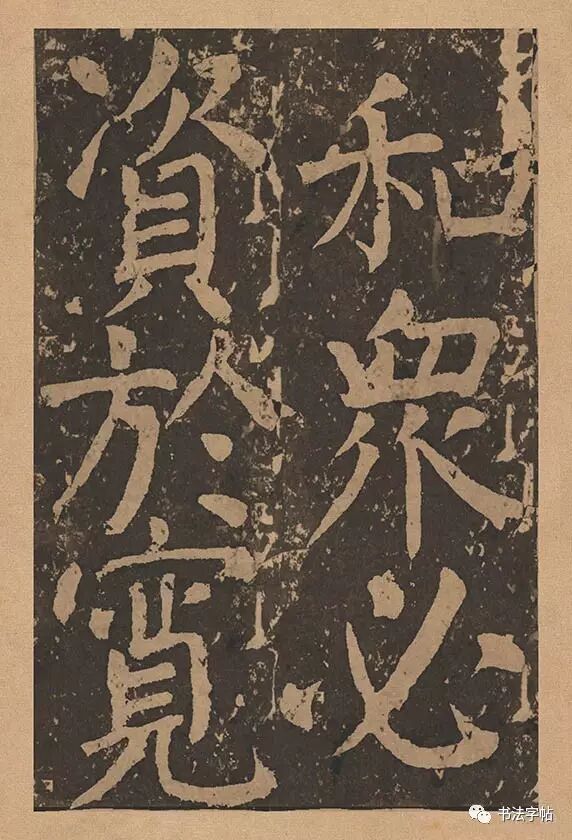 和衆必
資於寛
书法字帖